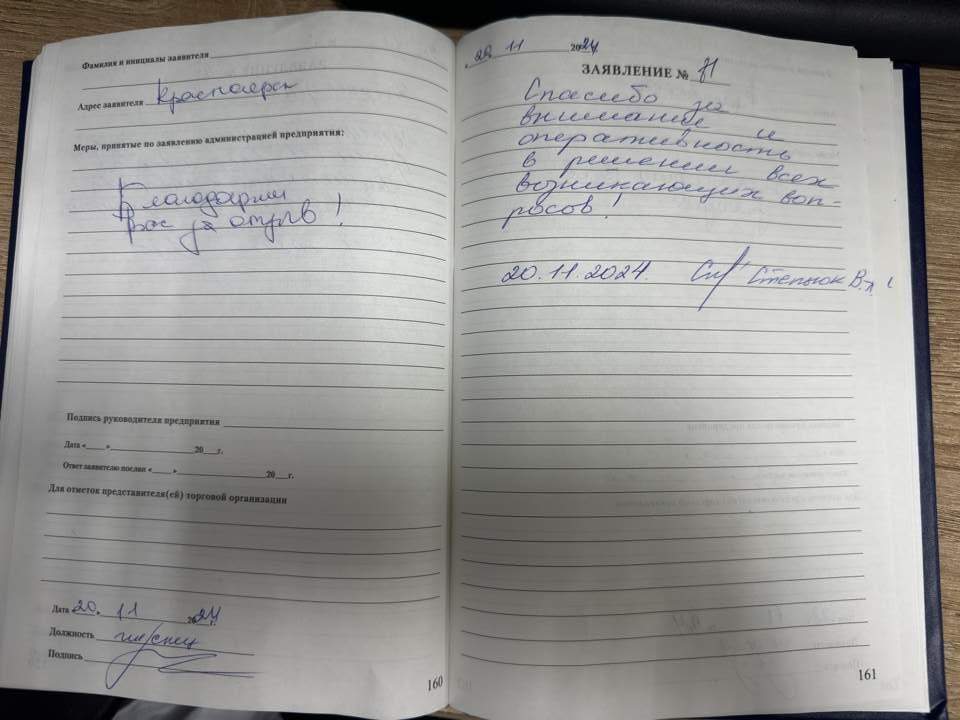 Фамилия и инициалы заявителя
Адрес заявителя Красноярск
Меры, принятые по заявлению администрацией предприятия:
Благодарим
Вас за отзыв!
Подпись руководителя предприятия
Дата « » 20 г.
Ответ заявителю послан « » 20 г.
Для отметок представителя(ей) торговой организации
Дата «20» 11 2024
Должность гл/спец
Подпись
160
20 11 2024
ЗАЯВЛЕНИЕ № 71
Спасибо за
внимание и
оперативность
в решении всех
возникающих воп-
росов!
20.11.2024. Степнюк В.
161